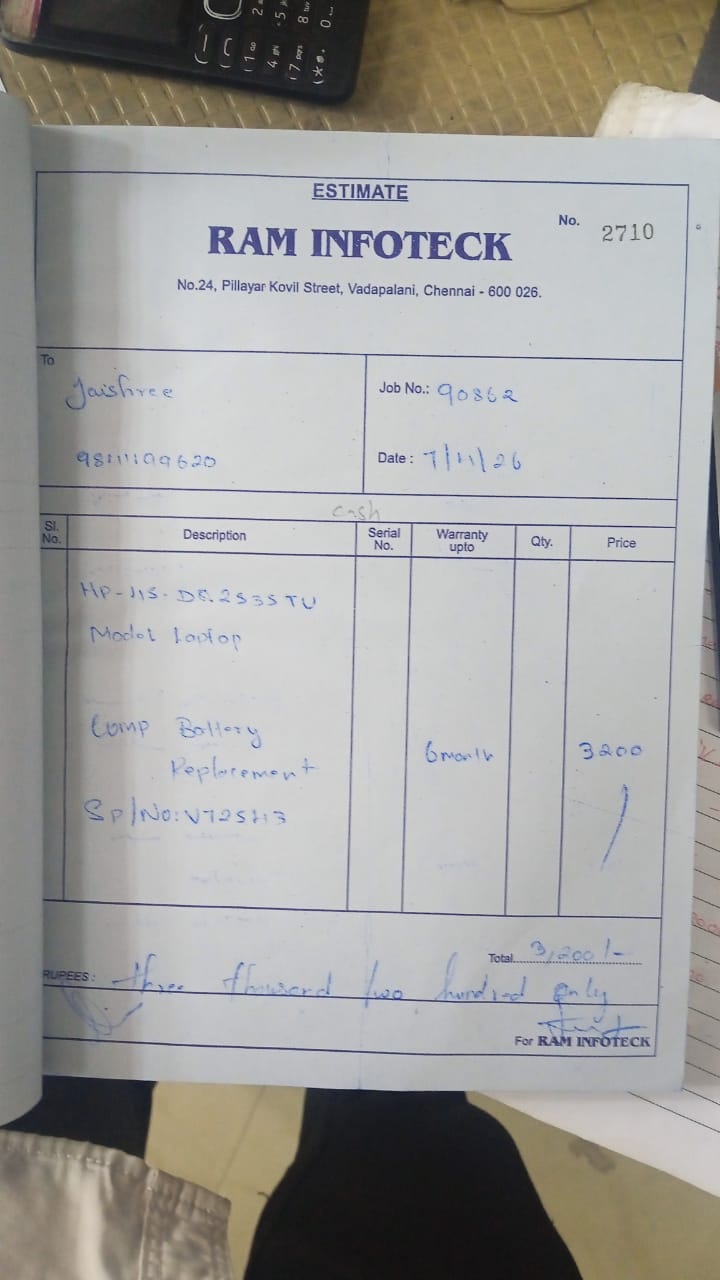 ESTIMATE
No. 2710
RAM INFOTECK
No.24, Pillayar Kovil Street, Vadapalani, Chennai - 600 026.
To
Jaishree
Job No.: 90862
Date : 7/11/26
cash
Sl. No. Description Serial No. Warranty upto Qty. Price
Model Laptop
Comp Battery
Replacement 6 month 3200
Sp/No:
Total 3,200/-
RUPEES : three thousand two hundred only
For RAM INFOTECK